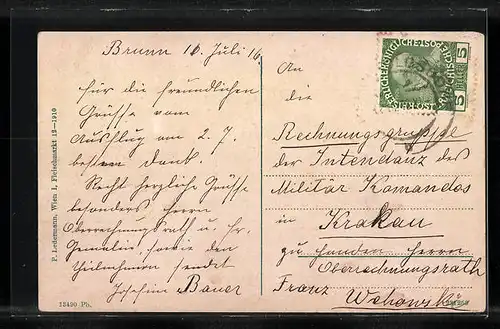 Brunn 10. Juli 16
für die freundlichen
Grüsse vom
Ausflug am 2. 7.
besten Dank.
Recht herzliche Grüsse
besonders Herrn
Oberrechnungsrath u. Fr.
Gemalin, sowie den
Theilnehmern sendet
Josefine Bauer
An
die
Rechnungsgruppe
der Intendanz des
Militär Komandos
in Krakau
zu handen Herrn
Oberrechnungsrath
Franz
P. Ledermann, Wien I, Fleischmarkt 12—1910
13490 Ph.
5 5